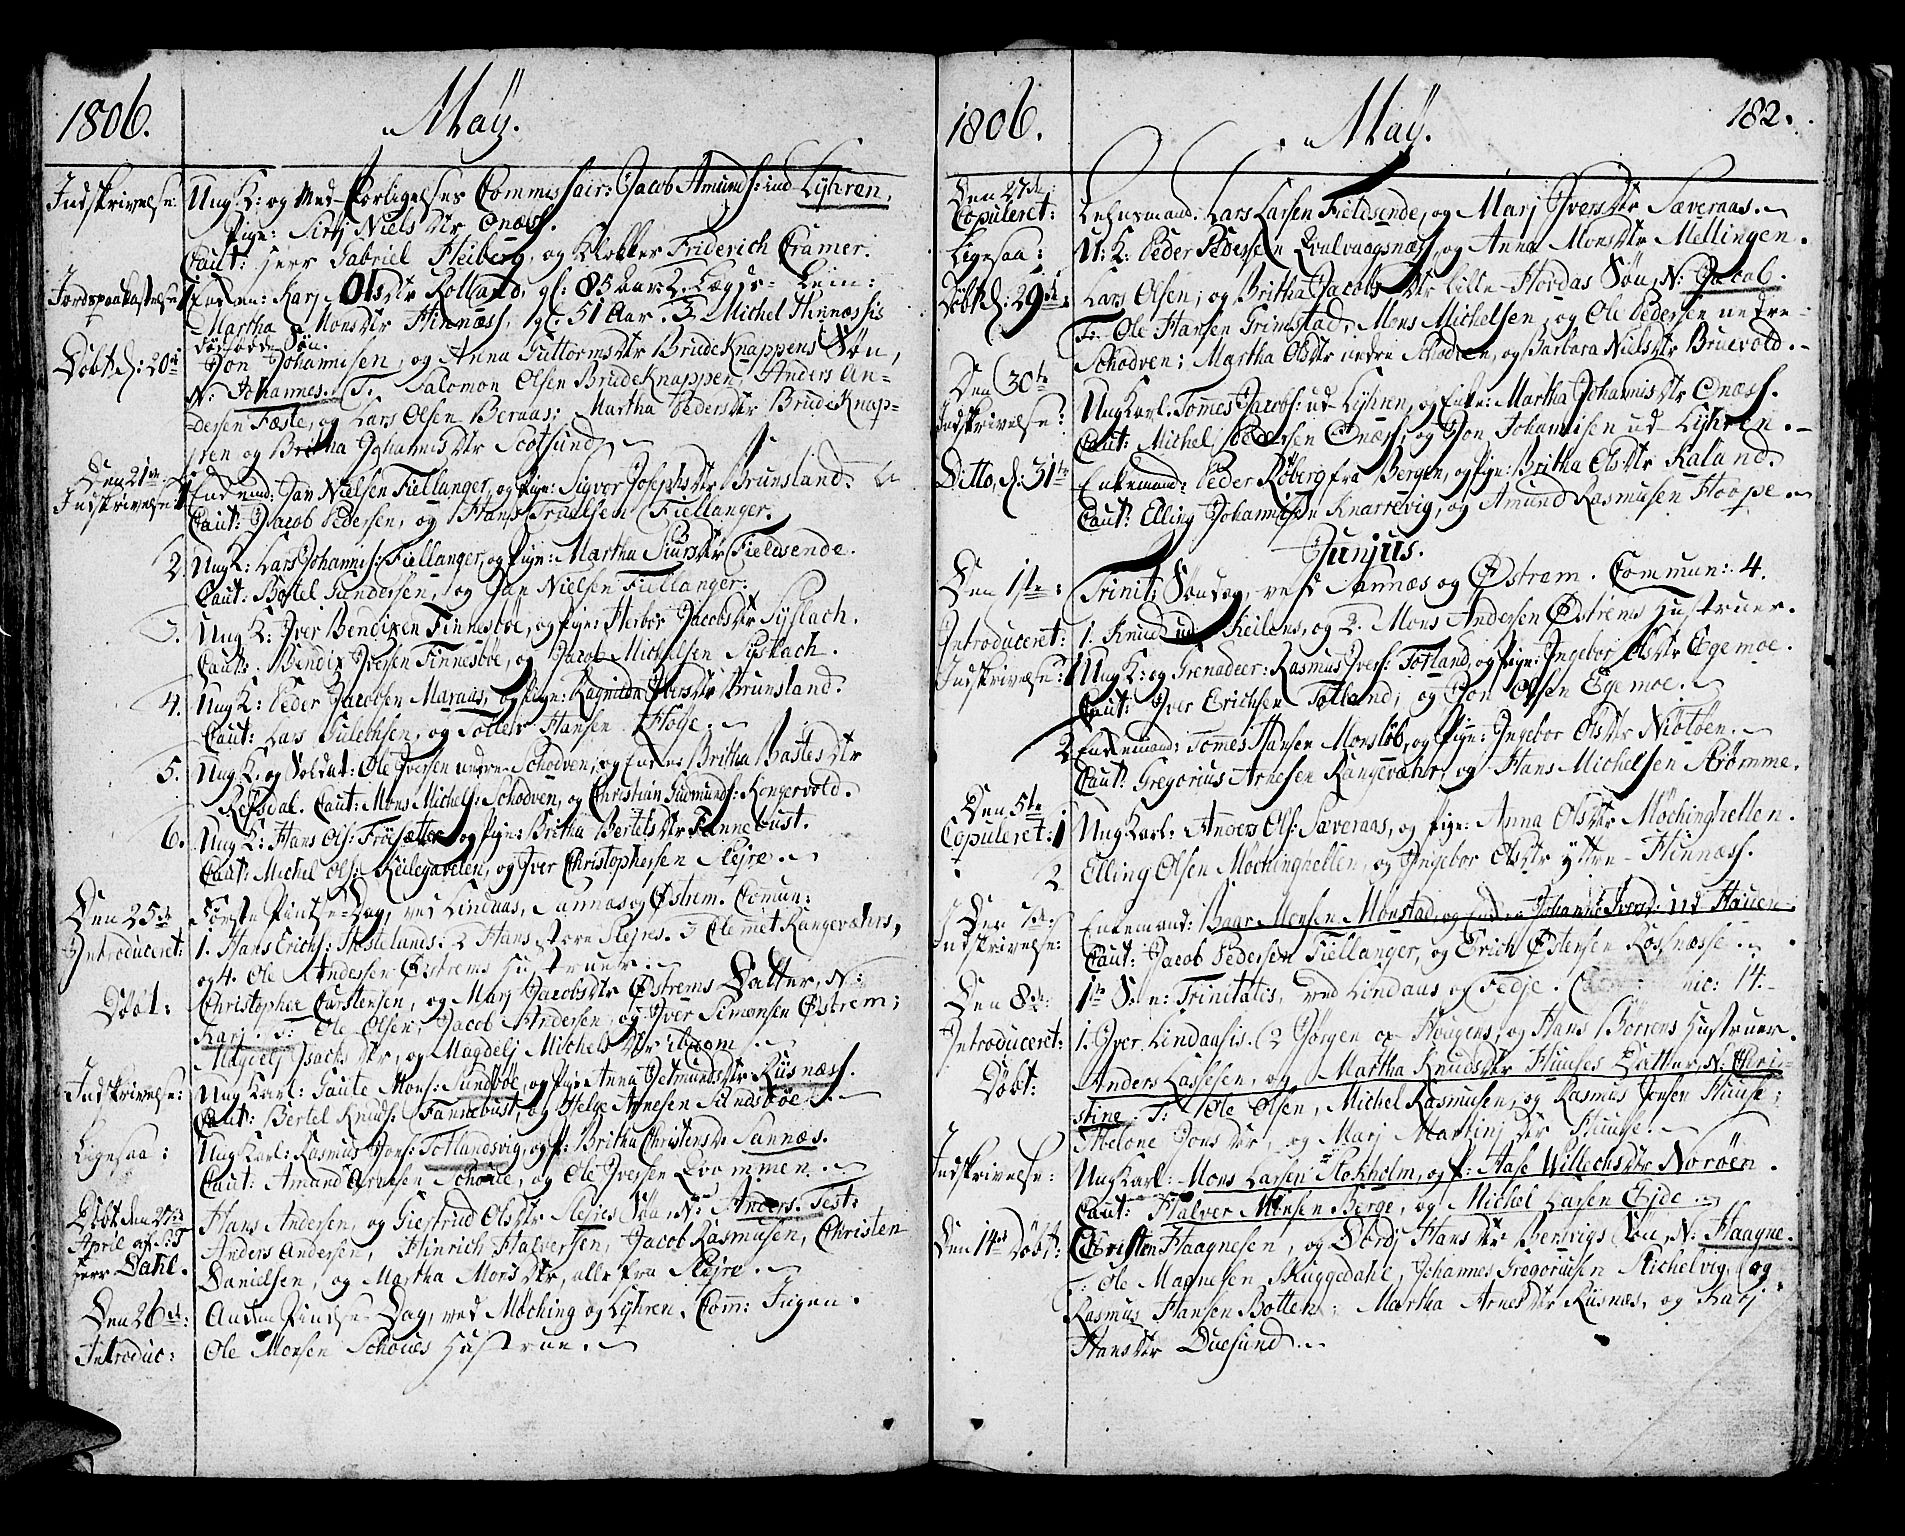 1806. May.
Indskrivelse: Ung K: og Med-Forligelses Commissair: Jacob Amunds: ind-Lyhren,
Pige: Sirij Niels Dtr Onæss.
Caut: Herr Gabriel Heiberg, og Klokker Friderich Cramer.
Jordspaakastelse: 1 Enken: Karj Ols Dtr Kolland, gl: 85 aar. 2. Lægds-Lem:
Martha Mons Dtr Hinnæss, gl: 51 Aar. 3. Michel Hinnæssis
dødfødde Søn.
Døbt d: 20de Jon Johannisen, og Anna Guttorms Dtr Brudeknappens Søn,
N: Johannes. T. Salomon Olsen Brudeknappen, Anders An-
dersen Fæste, og Lars Olsen Beraas: Martha Peders Dtr Brudeknap-
pen og Britha Johannis Dtr Scotsund.
Den 21de
Indskrivelse: 1 Enkemd: Jan Nielsen Fiellanger, og Pige: Sigvor Josephs Dtr Brunsland.
Caut: Jacob Pedersen, og Hans Truelsen Fiellanger.
2. Ung K: Lars Johannis: Fiellanger, og Pige: Martha Siurs Dtr Fieldsende.
Caut: Bottel Gundersen, og Jan Nielsen Fiellanger.
3. Ung K: Iver Bendixen Finnesbøe, og Pige: Herbor Jacobs Dtr Syslach.
Caut: Bendix Iversen Finnesboe, og Jacob Michelsen Syslach.
4. Ung K: Peder Jacobsen Maraas, og Pige: Ragnilda Ivers Dtr Brunsland.
Caut: Lars Gulebhsen, og Tollev Hansen Hope.
5. Ung K: og Soldat: Ole Iversen nedre-Schodven, og Enke: Britha Bastes Dtr
Reksdal. Caut: Mons Michels: Schodven, og Christian Gudmunds: Kongervold.
6. Ung K: Hans Ols: Frøisættee og Pige: Britha Bertels Dtr Fannebust.
Caut: Michel Ols: Keilegavelen, og Iver Christophersen Slejre.
Den 25de Første Pintze-Dag, ved Lindaas, Sannæs og Østrem. Comun:
Introduceret: 1. Hans Erichs: Hestelands: 2 Hans store Slejres. 3 Ole Kangeværhrs,
og 4. Ole Andersen Østrems Hustruer.
Døbt: Christopher Carstensen, og Marj Jacobs Dtr Østrems Datter, N:
Karj. T: Ole Olsen, Jacob Andersen, og Iver Simonsen Østrem;
Magdelj Isachs Dtr, og Magdelj Michels Dtr ibidem.
Indskrivelse: Ung Karl: Gaute Mons: Sundsbøe, og Pige: Anna Jetmunds Dtr Risnæss.
Caut: Bertel Knuds: Fannebust, og Helge Arnesen Sundsbøe.
Ligesaa: Ung Karl: Rasmus Jons: Totlandsvig, og P: Britha Christens Dr Sannæs.
Caut: Amund Arnesen Schoue, og Ole Iversen Qvammen.
Døbt den 27de Hans Andersen, og Giertrud Ols Dtr Slejres Søn N: Anders. Test:
April af S:T Anders Andersen, Hinrich Halversen, Jacob Rasmusen, Christen
Herr Dahl. Danielsen, og Martha Mons Dtr, alle fra Slejre.
Den 26de: Anden Pindse-Dag, ved Møching og Lyhren. Com: Ingen.
Introduc: Ole Monsen Schoues Hustrue.
1806. May. 182.
Den 27de
Copuleret: Lehnsmand: Lars Larsen Fieldsende, og Marj Ivers Dtr Sæveraas.
Ligesaa: U: K: Peder Pedersen Qvalvaagsnæss, og Anna Mons Dtr Mellingen.
Døbt d: 29de: Lars Olsen, og Britha Jacobs Dtr lille-Hordas Søn, N: Jacob.
T: Ole Hansen Grimstad, Mons Michelsen, og Ole Pedersen nedre-
Schodven; Martha Ols Dtr nedre Schodven, og Barbara Niels Dtr Bruevold.
Den 30te
Indskrivelse: Ung Karl: Tomes Jacobs: ud-Lyhren, og Enke: Martha Johannis Dtr Onæss.
Caut: Michel Pedersen Onæss, og Jon Johannisen ud-Lyhren.
Ditto, d: 31te Enkemand: Peder Røberg fra Bergen, og Pige: Britha Ols Dtr Kaland.
Caut: Elling Johannisen Knarrevig, og Amund Rasmusen Hoope.
Junjus.
Den 1ste: Trinit: Søndag, ved Sannæs og Østrem. Commun: 4.
Introduceret: 1. Knud ud Keilens, og 2. Mons Andersen Østrems Hustruer.
Indskrivelse: 1 Ung K: og Grenadeer: Rasmus Ivers: Totland, og Pige: Ingebor Ols Dtr Egemoe.
Caut: Iver Erichsen Totland, og Jon Olsen Egemoe.
2 Enkemand: Tomes Hansen Monsløb, og Pige: Ingebor Ols Dtr Niotøen.
Caut: Gregorius Arnesen Kangevæhr, og Hans Michelsen Strømme.
Den 5te
Copuleret: 1 Ung Karl: Anders Ols: Sæveraas, og Pige: Anna Ols Dtr Møchinghellen.
2 Elling Olsen Møchinghellen, og Ingebor Ols Dtr yttre-Hinnæss.
Den 7de
Indskrivelse: Enkemand: Baar Monsen Monstad, og Enken Johanne Ivers: ud Hauen.
Caut: Jacob Pedersen Fiellanger, og Erich Østensen Rossnæsse.
Den 8de: 1te S: e: Trinitatis, ved Lindaas og Fedje. nic: 14.
Introduceret: 1. Iver Lindaasis. 2 Jørgen Haugens, og Hans Børrens Hustruer.
Døbt: Anders Lassesen, og Martha Knuds Dtr Huuses Datter, N: Chri-
stine. T: Ole Olsen, Michel Rasmusen, og Rasmus Jensen Huuse;
Helone Jons Dtr, og Marj Martinj Dtr Huuse.
Indskrivelse: Ung Karl: Mons Larsen Stokholm, og P: Aase Willechs Dtr Norøen.
Caut: Halver Monsen Berge, og Michel Larsen Eide.
Den 14de Døbt: Christen Haagnesen, og Dordj Hans Dtr Bensvigs Søn, N: Haagne.
T: Ole Magnesen Skuggedahl, Johannes Gregoriusen Kichelvig, og
Rasmus Hansen Botten; Martha Arnes Dtr Risnæs, og Karj
Hans Dtr Duesund.